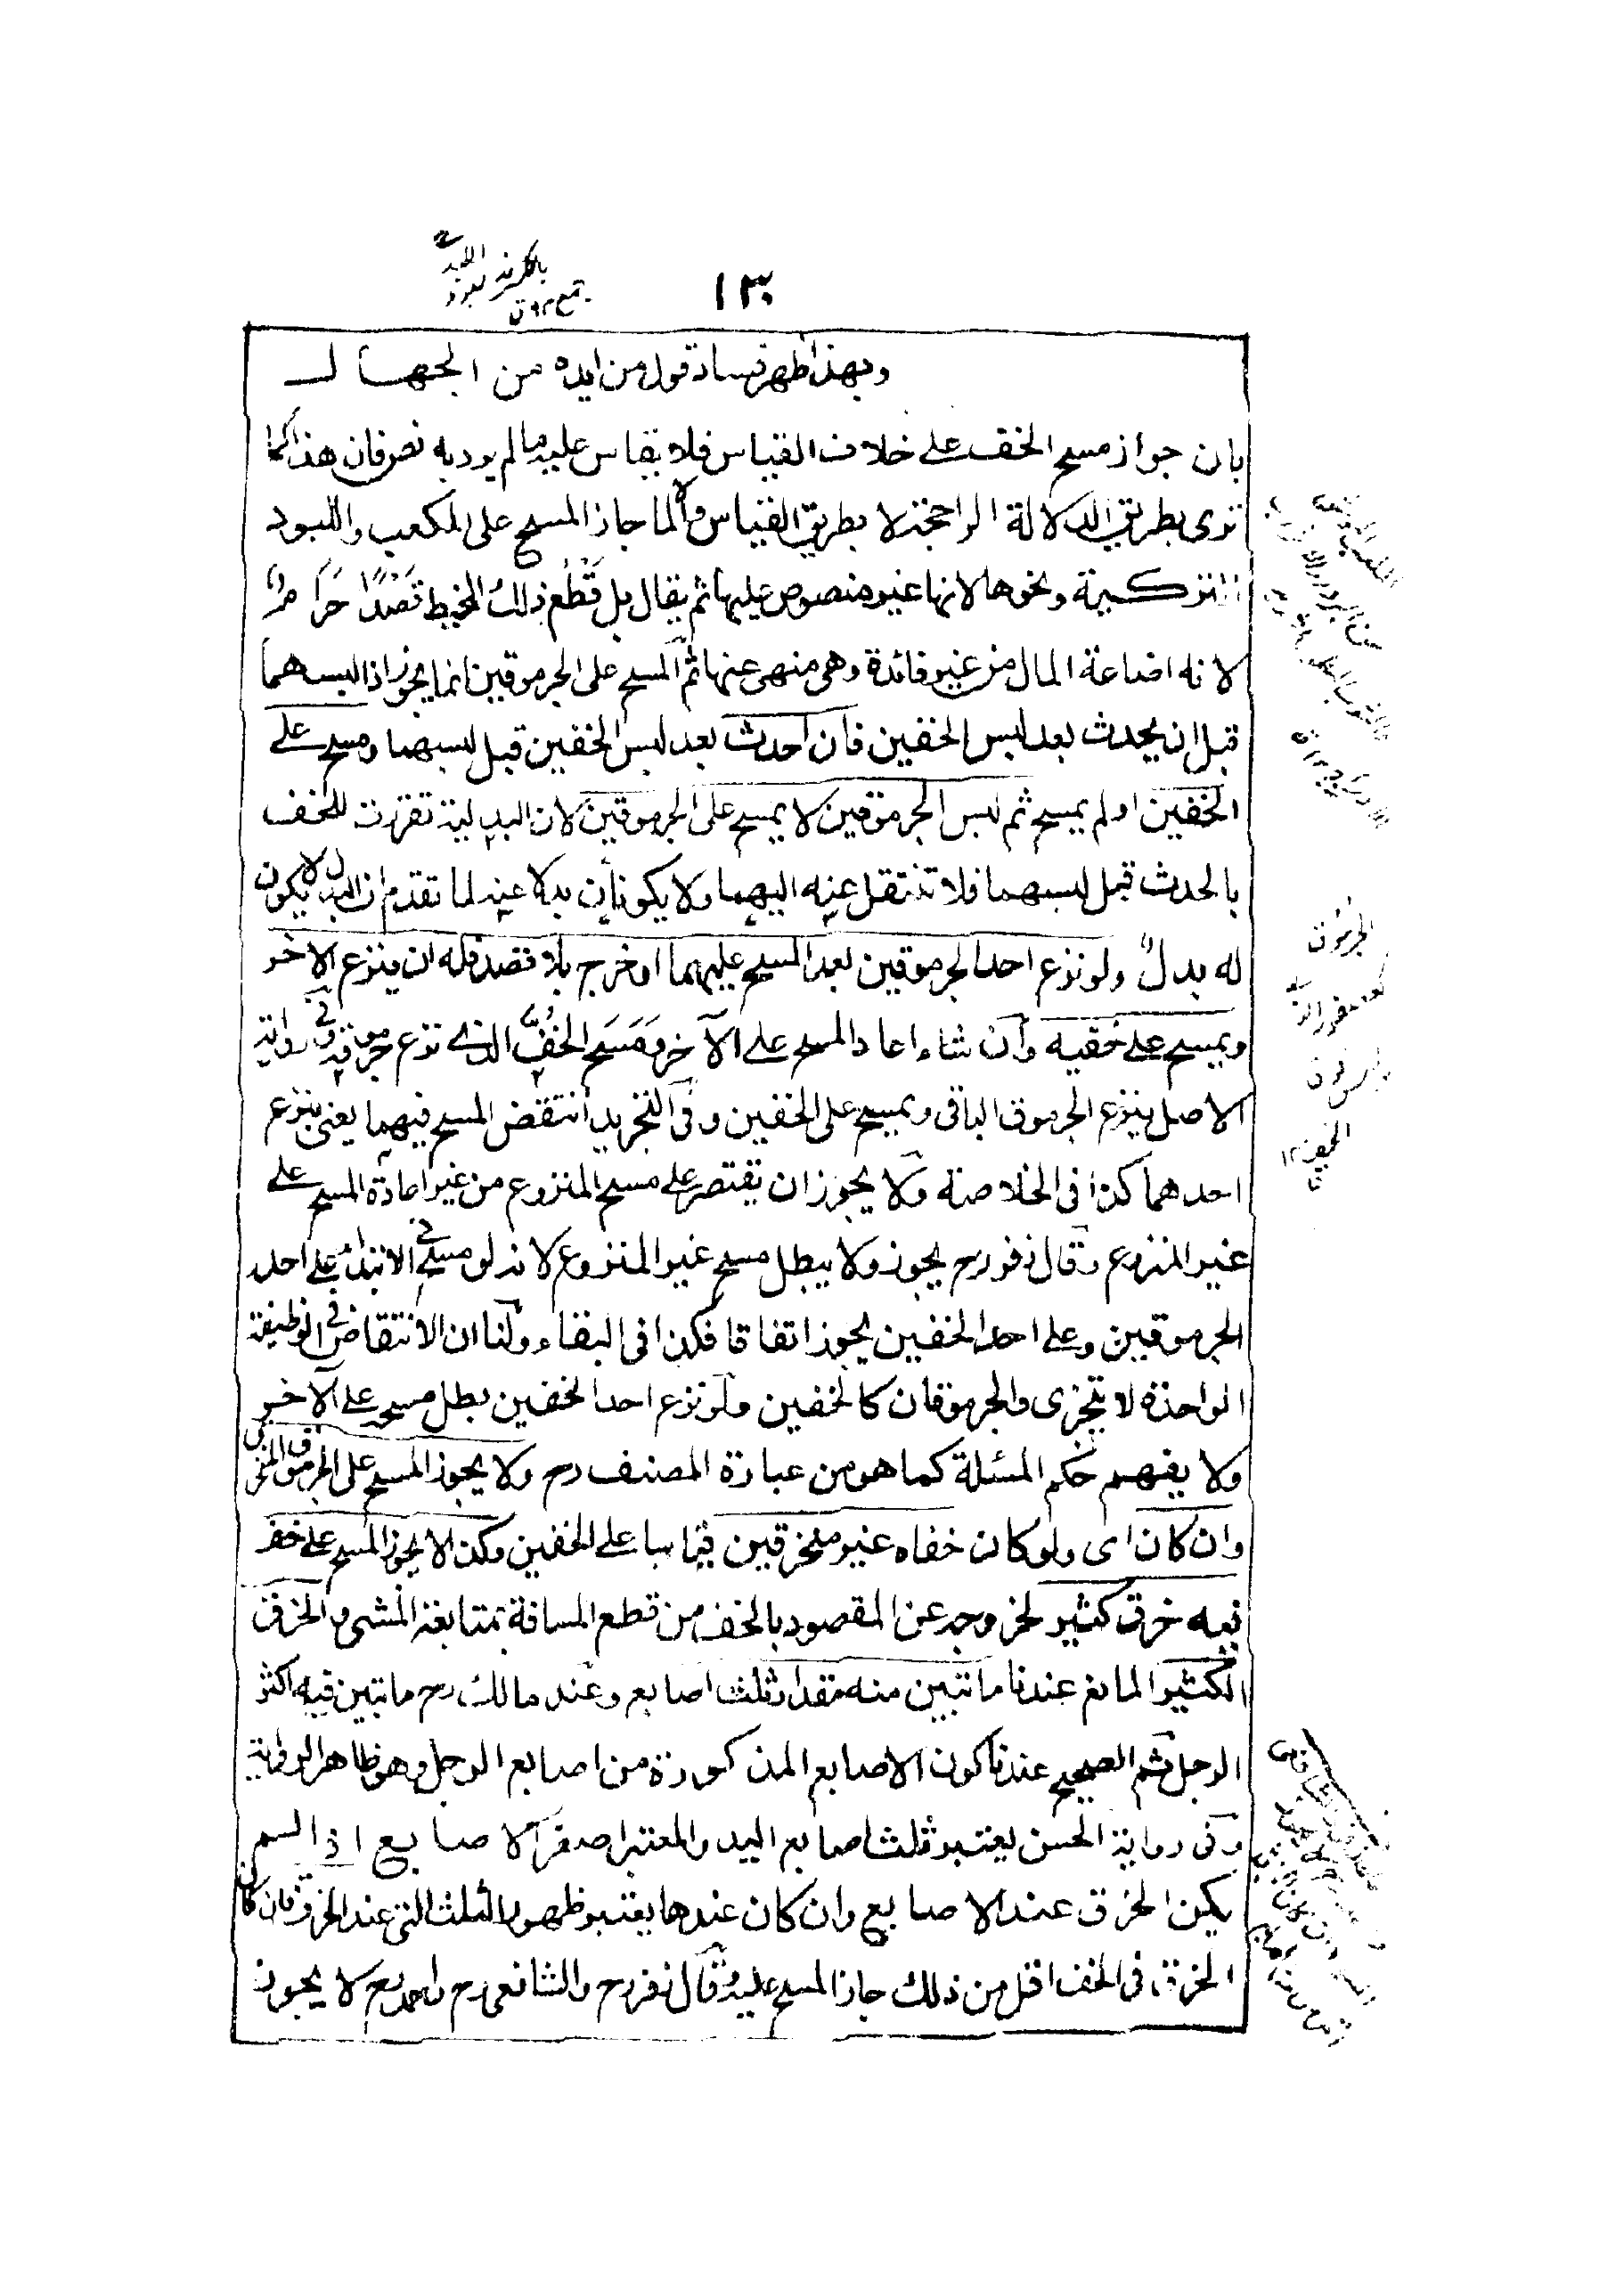 ١٣٠
وبهذا ظهر فساد قول من ايده من الجهال
بان جواز مسح الخف على خلاف القياس فلا يقاس عليه ما لم يرد به نص فان هذا كما
ترى بطريق الدلالة الراجحة لا بطريق القياس والا لما جاز المسح على المكعب واللبود
التركية ونحوها لانها غير منصوص عليها ثم يقال بل قطع ذلك المخيط قصدًا حرامًا
لانه اضاعة المال من غير فائدة وهى منهى عنها ثم المسح على الجرموقين انما يجوز اذا لبسهما
قبل ان يحدث بعد لبس الخفين فان احدث بعد لبس الخفين قبل لبسهما ومسح على
الخفين او لم يمسح ثم لبس الجرموقين لا يمسح على الجرموقين لان البدلية تقررت للخف
بالحدث قبل لبسهما فلا تنتقل عنه اليهما ولا يكونان بدلا عنه لما تقدم ان البدل لا يكون
له بدل ولو نزع احد الجرموقين بعد المسح عليهما او خرج بلا قصد فله ان ينزع الآخر
ويمسح على خفيه وان شاء اعاد المسح على الآخر ومسح الخف الذى نزع جرموقه وفى رواية
الاصل ينزع الجرموق الباقى ويمسح على الخفين وفى التجريد انتقض المسح فيهما يعنى بنزع
احدهما كذا فى الخلاصة ولا يجوز ان يقتصر على مسح المنزوع من غير اعادة المسح على
غير المنزوع وقال زفر رح يجوز ولا يبطل مسح غير المنزوع لانه لو مسح فى الابتداء على احد
الجرموقين وعلى احد الخفين يجوز اتفاقا فكذا فى البقاء ولنا ان الانتقاض فى الوظيفة
الواحدة لا يتجزى والجرموقان كالخفين ولو نزع احد الخفين بطل مسحه على الآخر
ولا يفهم حكم المسئلة كما هو من عبارة المصنف رح ولا يجوز المسح على الجرموق المنخرق
وان كان اى ولو كان خفاه غير منخرقين قياسا على الخفين وكذا لا يجوز المسح على خف
فيه خرق كثير لخروجه عن المقصود بالخف من قطع المسافة بمتابعة المشى والخرق
الكثير المانع عندنا ما تبين منه مقدار ثلث اصابع وعند مالك رح ما تبين فيه اكثر
الرجل ثم الصحيح عندنا كون الاصابع المذكورة من اصابع الرجل وهو ظاهر الرواية
وفى رواية الحسن يعتبر ثلث اصابع اليد والمعتبر اصغر الاصابع اذا لم
يكن الخرق عند الاصابع وان كان عندها يعتبر ظهور الثلث التى عند الخرق فان كان
الخرق فى الخف اقل من ذلك جاز المسح عليه وقال زفر رح والشافعى رح واحمد رح لا يجوز
الجرموق